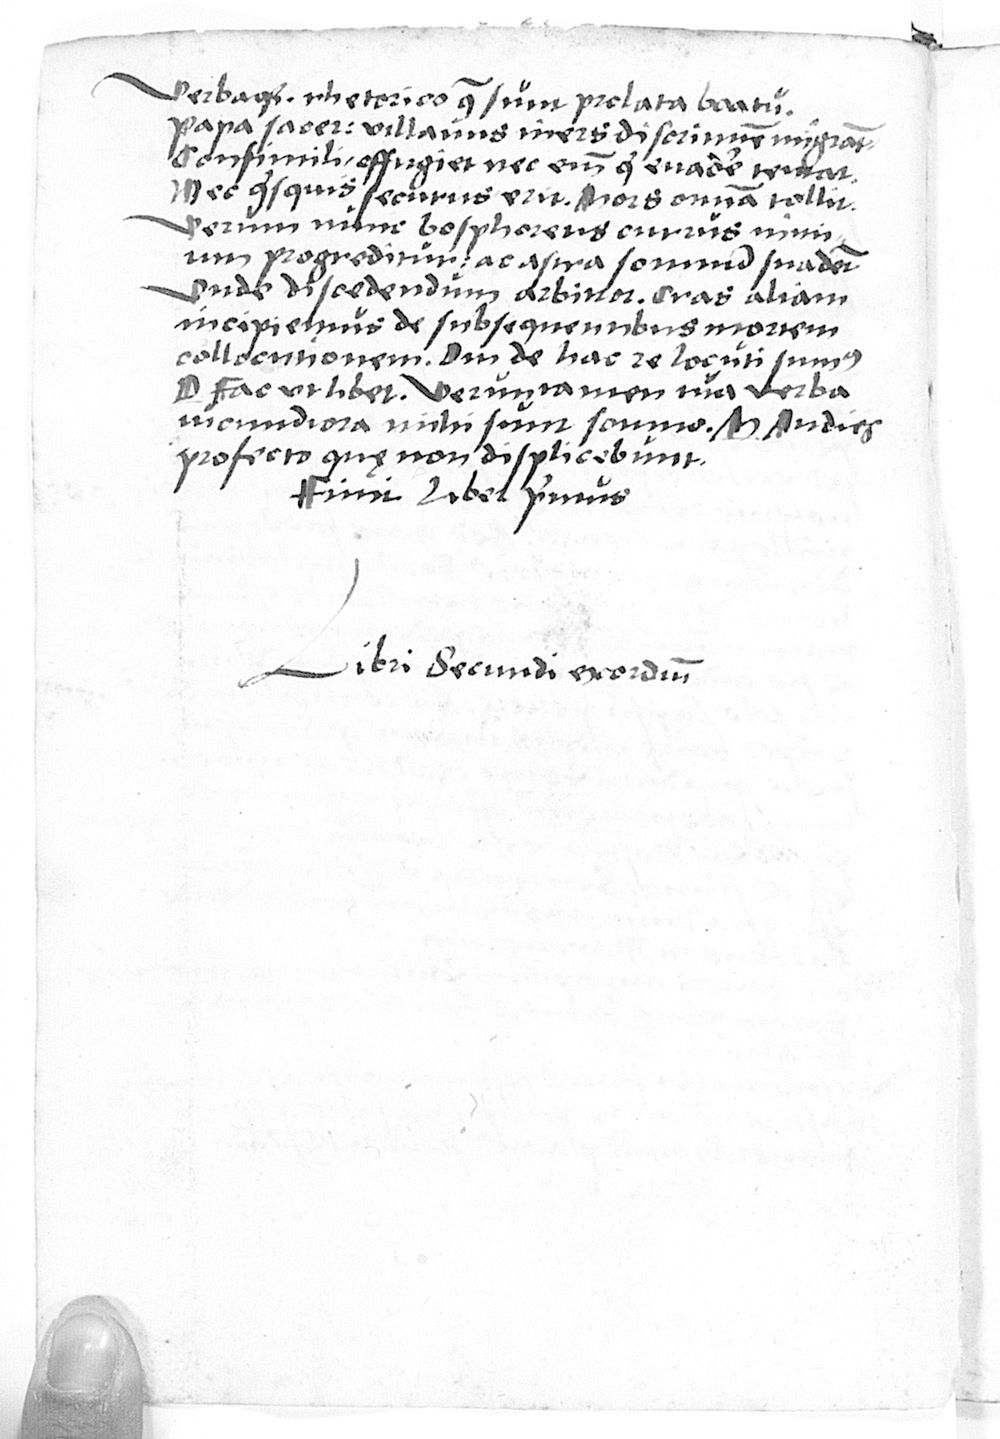 Verbaqȝ. rhetorico q̄ sunt prolata boatu.
Papa sacer: villanus iners discrimīe migrāt
Consimili, effugiet nec em̄ q̇ euadē tentat.
Nec q̇squis securus erit. Mors omīa tollit.
Verum nunc bosphoreus currus nimi,
um progreditur: ac astra somnū suadēt
Vnde discedendum arbitror. Cras aliam
incipiemus de subsequentibus mortem
collocutionem. Diu de hac re locuti sum⁹
D Fac vt libet. Veruntamen tua verba
iucundiora mihi sunt somno. M Audies
profecto quę non displicebunt.
Finit Liber p̄mus
Libri Secundi exordiū